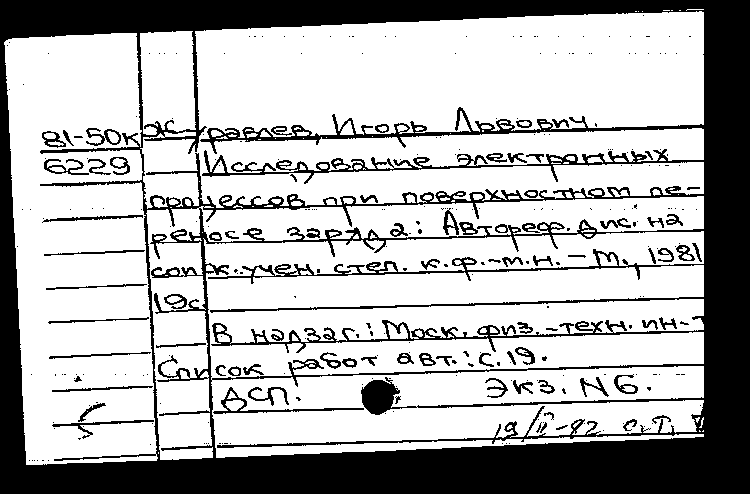 81-50к Журавлев, Игорь Львович.
6229 Исследование электронных
процессов при поверхностном пе-
реносе заряда: Автореф. дис. на
соиск. учен. степ. к.ф.-м.н. - М., 1981
19с.
В надзаг.: Моск. физ.-техн. ин-т
Список работ авт.: с.19.
ДСП. Экз. N6.
19/II-92 О.Т.